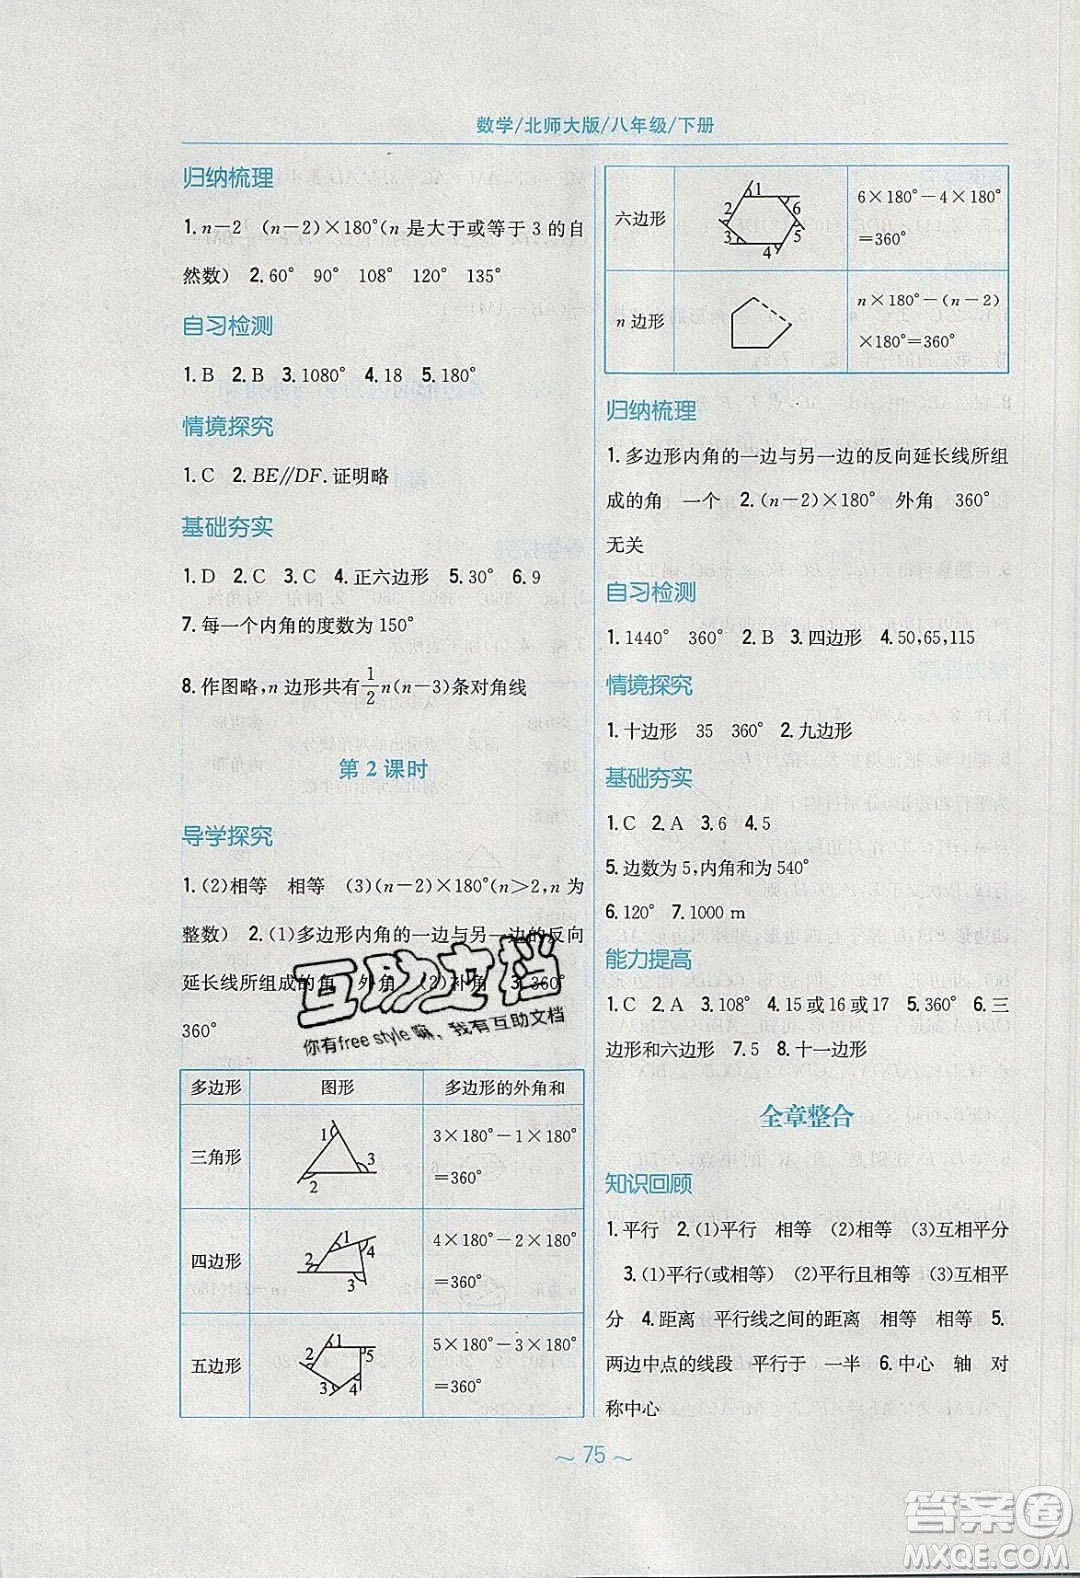 数学/北师大版/八年级/下册
归纳梳理
1. n－2　(n－2)×180°(n 是大于或等于 3 的自
然数)　2. 60°　90°　108°　120°　135°
自习检测
1. B　2. B　3. 1080°　4. 18　5. 180°
情境探究
1. C　2. BE//DF. 证明略
基础夯实
1. D　2. C　3. C　4. 正六边形　5. 30°　6. 9
7. 每一个内角的度数为 150°
8. 作图略,n 边形共有 1/2 n(n－3)条对角线
第 2 课时
导学探究
1. (2)相等　相等　(3)(n－2)×180°(n＞2,n 为
整数)　2. (1)多边形内角的一边与另一边的反向
延长线所组成的角　外角　(2)补角　3. 360°
360°
多边形　图形　多边形的外角和
三角形　1　2　3　3×180°－1×180°
＝360°
四边形　1　2　3　4　4×180°－2×180°
＝360°
五边形　1　2　3　4　5　5×180°－3×180°
＝360°
六边形　1　2　3　4　5　6　6×180°－4×180°
＝360°
n 边形　n×180°－(n－2)
×180°＝360°
归纳梳理
1. 多边形内角的一边与另一边的反向延长线所组
成的角　一个　2. (n－2)×180°　外角　360°
无关
自习检测
1. 1440°　360°　2. B　3. 四边形　4. 50,65,115
情境探究
1. 十边形　35　360°　2. 九边形
基础夯实
1. C　2. A　3. 6　4. 5
5. 边数为 5,内角和为 540°
6. 120°　7. 1000 m
能力提高
1. C　2. A　3. 108°　4. 15 或 16 或 17　5. 360°　6. 三
边形和六边形　7. 5　8. 十一边形
全章整合
知识回顾
1. 平行　2. (1)平行　相等　(2)相等　(3)互相平分
3. (1)平行(或相等)　(2)平行且相等　(3)互相平
分　4. 距离　平行线之间的距离　相等　相等　5.
两边中点的线段　平行于　一半　6. 中心　轴　对
称中心
～ 75 ～
互助文档
你有free style嘛、我有互助文档
答案圈
MXQE.COM